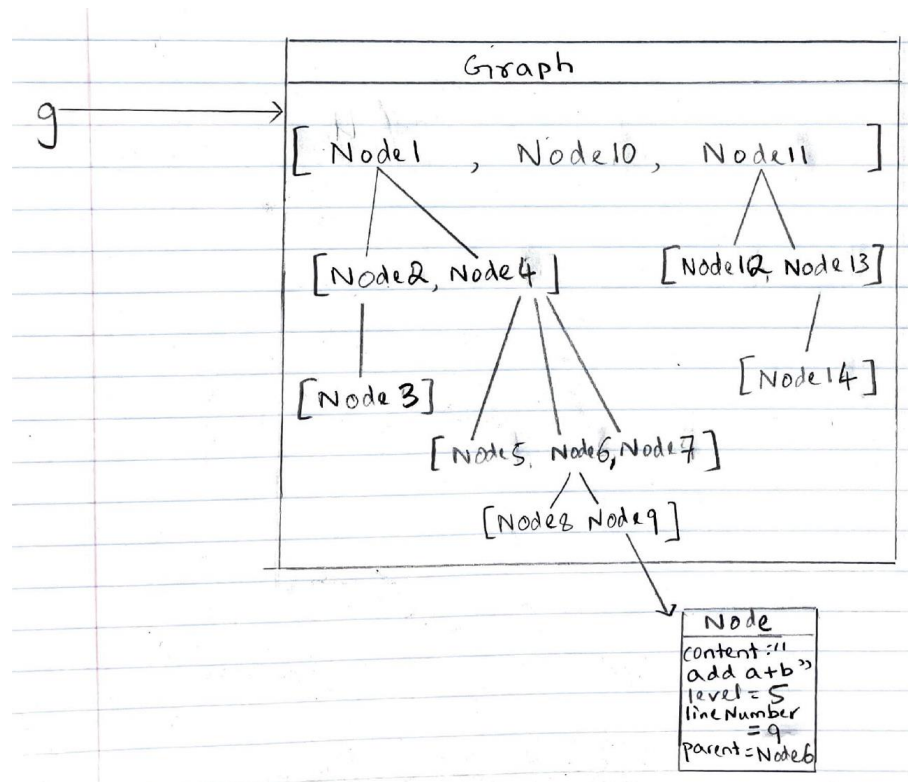 Graph
g
[ Node1 , Node10, Node11 ]
[Node2, Node4] [Node12, Node13]
[Node3] [Node14]
[Node5, Node6, Node7]
[Node8 Node9]
Node
content:"
add a+b"
level = 5
lineNumber
= 9
parent=Node6